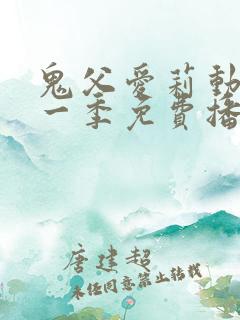 鬼父愛莉動
一季免費播
唐建超
未经同意禁止转载